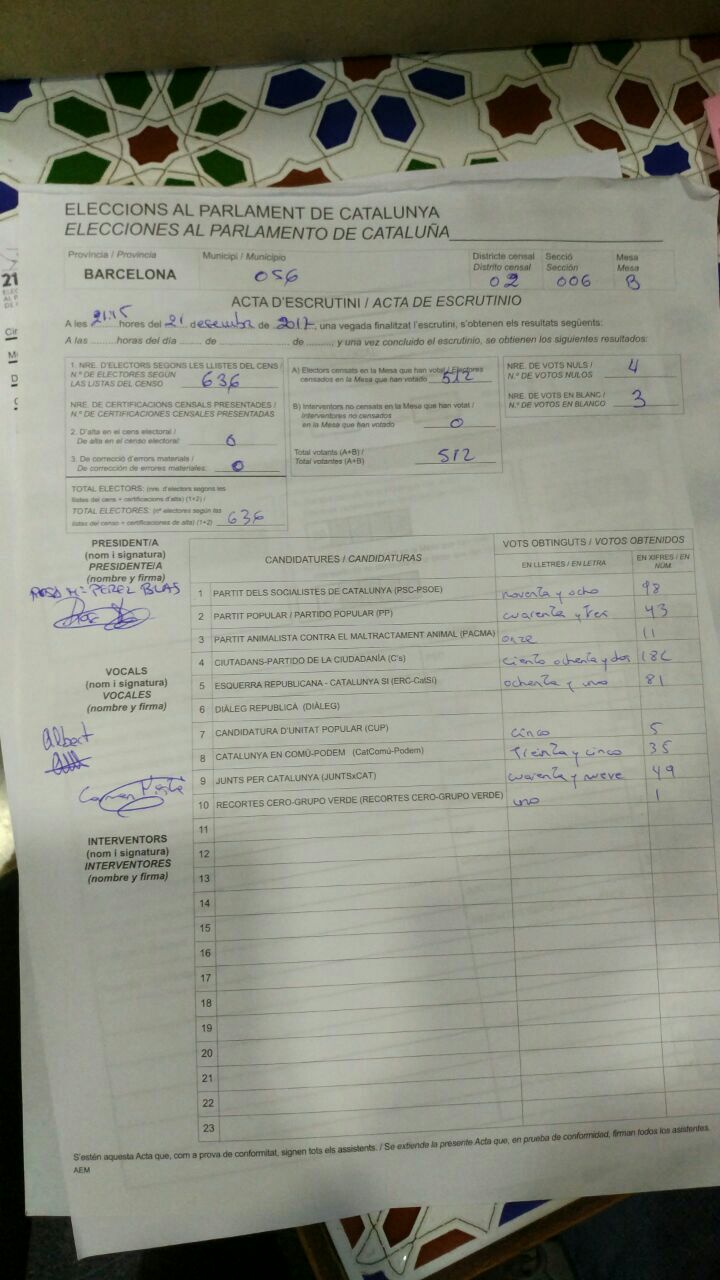 ELECCIONS AL PARLAMENT DE CATALUNYA
ELECCIONES AL PARLAMENTO DE CATALUÑA
Província / Provincia
Municipi / Municipio
Districte censal
Distrito censal
Secció
Sección
Mesa
Mesa
BARCELONA
056
02
006
B
21
ACTA D'ESCRUTINI / ACTA DE ESCRUTINIO
A les 21:15 hores del 21 desembre de 2017, una vegada finalitzat l'escrutini, s'obtenen els resultats següents:
A las ......... horas del día ....... de .................. de ........., y una vez concluido el escrutinio, se obtienen los siguientes resultados:
1. NRE. D'ELECTORS SEGONS LES LLISTES DEL CENS /
N.º DE ELECTORES SEGÚN
LAS LISTAS DEL CENSO 636
NRE. DE CERTIFICACIONS CENSALS PRESENTADES /
N.º DE CERTIFICACIONES CENSALES PRESENTADAS
2. D'alta en el cens electoral /
De alta en el censo electoral: 0
3. De correcció d'errors materials /
De corrección de errores materiales: 0
TOTAL ELECTORS: (nre. d'electors segons les
llistes del cens + certificacions d'alta) (1+2) /
TOTAL ELECTORES: (nº electores según las
listas del censo + certificaciones de alta) (1+2) 636
A) Electors censats en la Mesa que han votat / Electores
censados en la Mesa que han votado 512
B) Interventors no censats en la Mesa que han votat /
Interventores no censados
en la Mesa que han votado 0
Total votants (A+B) /
Total votantes (A+B) 512
NRE. DE VOTS NULS /
N.º DE VOTOS NULOS 4
NRE. DE VOTS EN BLANC /
N.º DE VOTOS EN BLANCO 3
PRESIDENT/A
(nom i signatura)
PRESIDENTE/A
(nombre y firma)
ROSA Mª PEREZ BLAS
VOCALS
(nom i signatura)
VOCALES
(nombre y firma)
Albert
Carmen
INTERVENTORS
(nom i signatura)
INTERVENTORES
(nombre y firma)
CANDIDATURES / CANDIDATURAS
VOTS OBTINGUTS / VOTOS OBTENIDOS
EN LLETRES / EN LETRA
EN XIFRES / EN NÚM.
1 PARTIT DELS SOCIALISTES DE CATALUNYA (PSC-PSOE) noventa y ocho 98
2 PARTIT POPULAR / PARTIDO POPULAR (PP) cuarenta y tres 43
3 PARTIT ANIMALISTA CONTRA EL MALTRACTAMENT ANIMAL (PACMA) onze 11
4 CIUTADANS-PARTIDO DE LA CIUDADANÍA (C's) ciento ochenta y dos 182
5 ESQUERRA REPUBLICANA - CATALUNYA SI (ERC-CatSí) ochenta y uno 81
6 DIÀLEG REPUBLICÀ (DIÀLEG)
7 CANDIDATURA D'UNITAT POPULAR (CUP) cinco 5
8 CATALUNYA EN COMÚ-PODEM (CatComú-Podem) treinta y cinco 35
9 JUNTS PER CATALUNYA (JUNTSxCAT) cuarenta y nueve 49
10 RECORTES CERO-GRUPO VERDE (RECORTES CERO-GRUPO VERDE) uno 1
11
12
13
14
15
16
17
18
19
20
21
22
23
S'estén aquesta Acta que, com a prova de conformitat, signen tots els assistents. / Se extiende la presente Acta que, en prueba de conformidad, firman todos los asistentes.
AEM